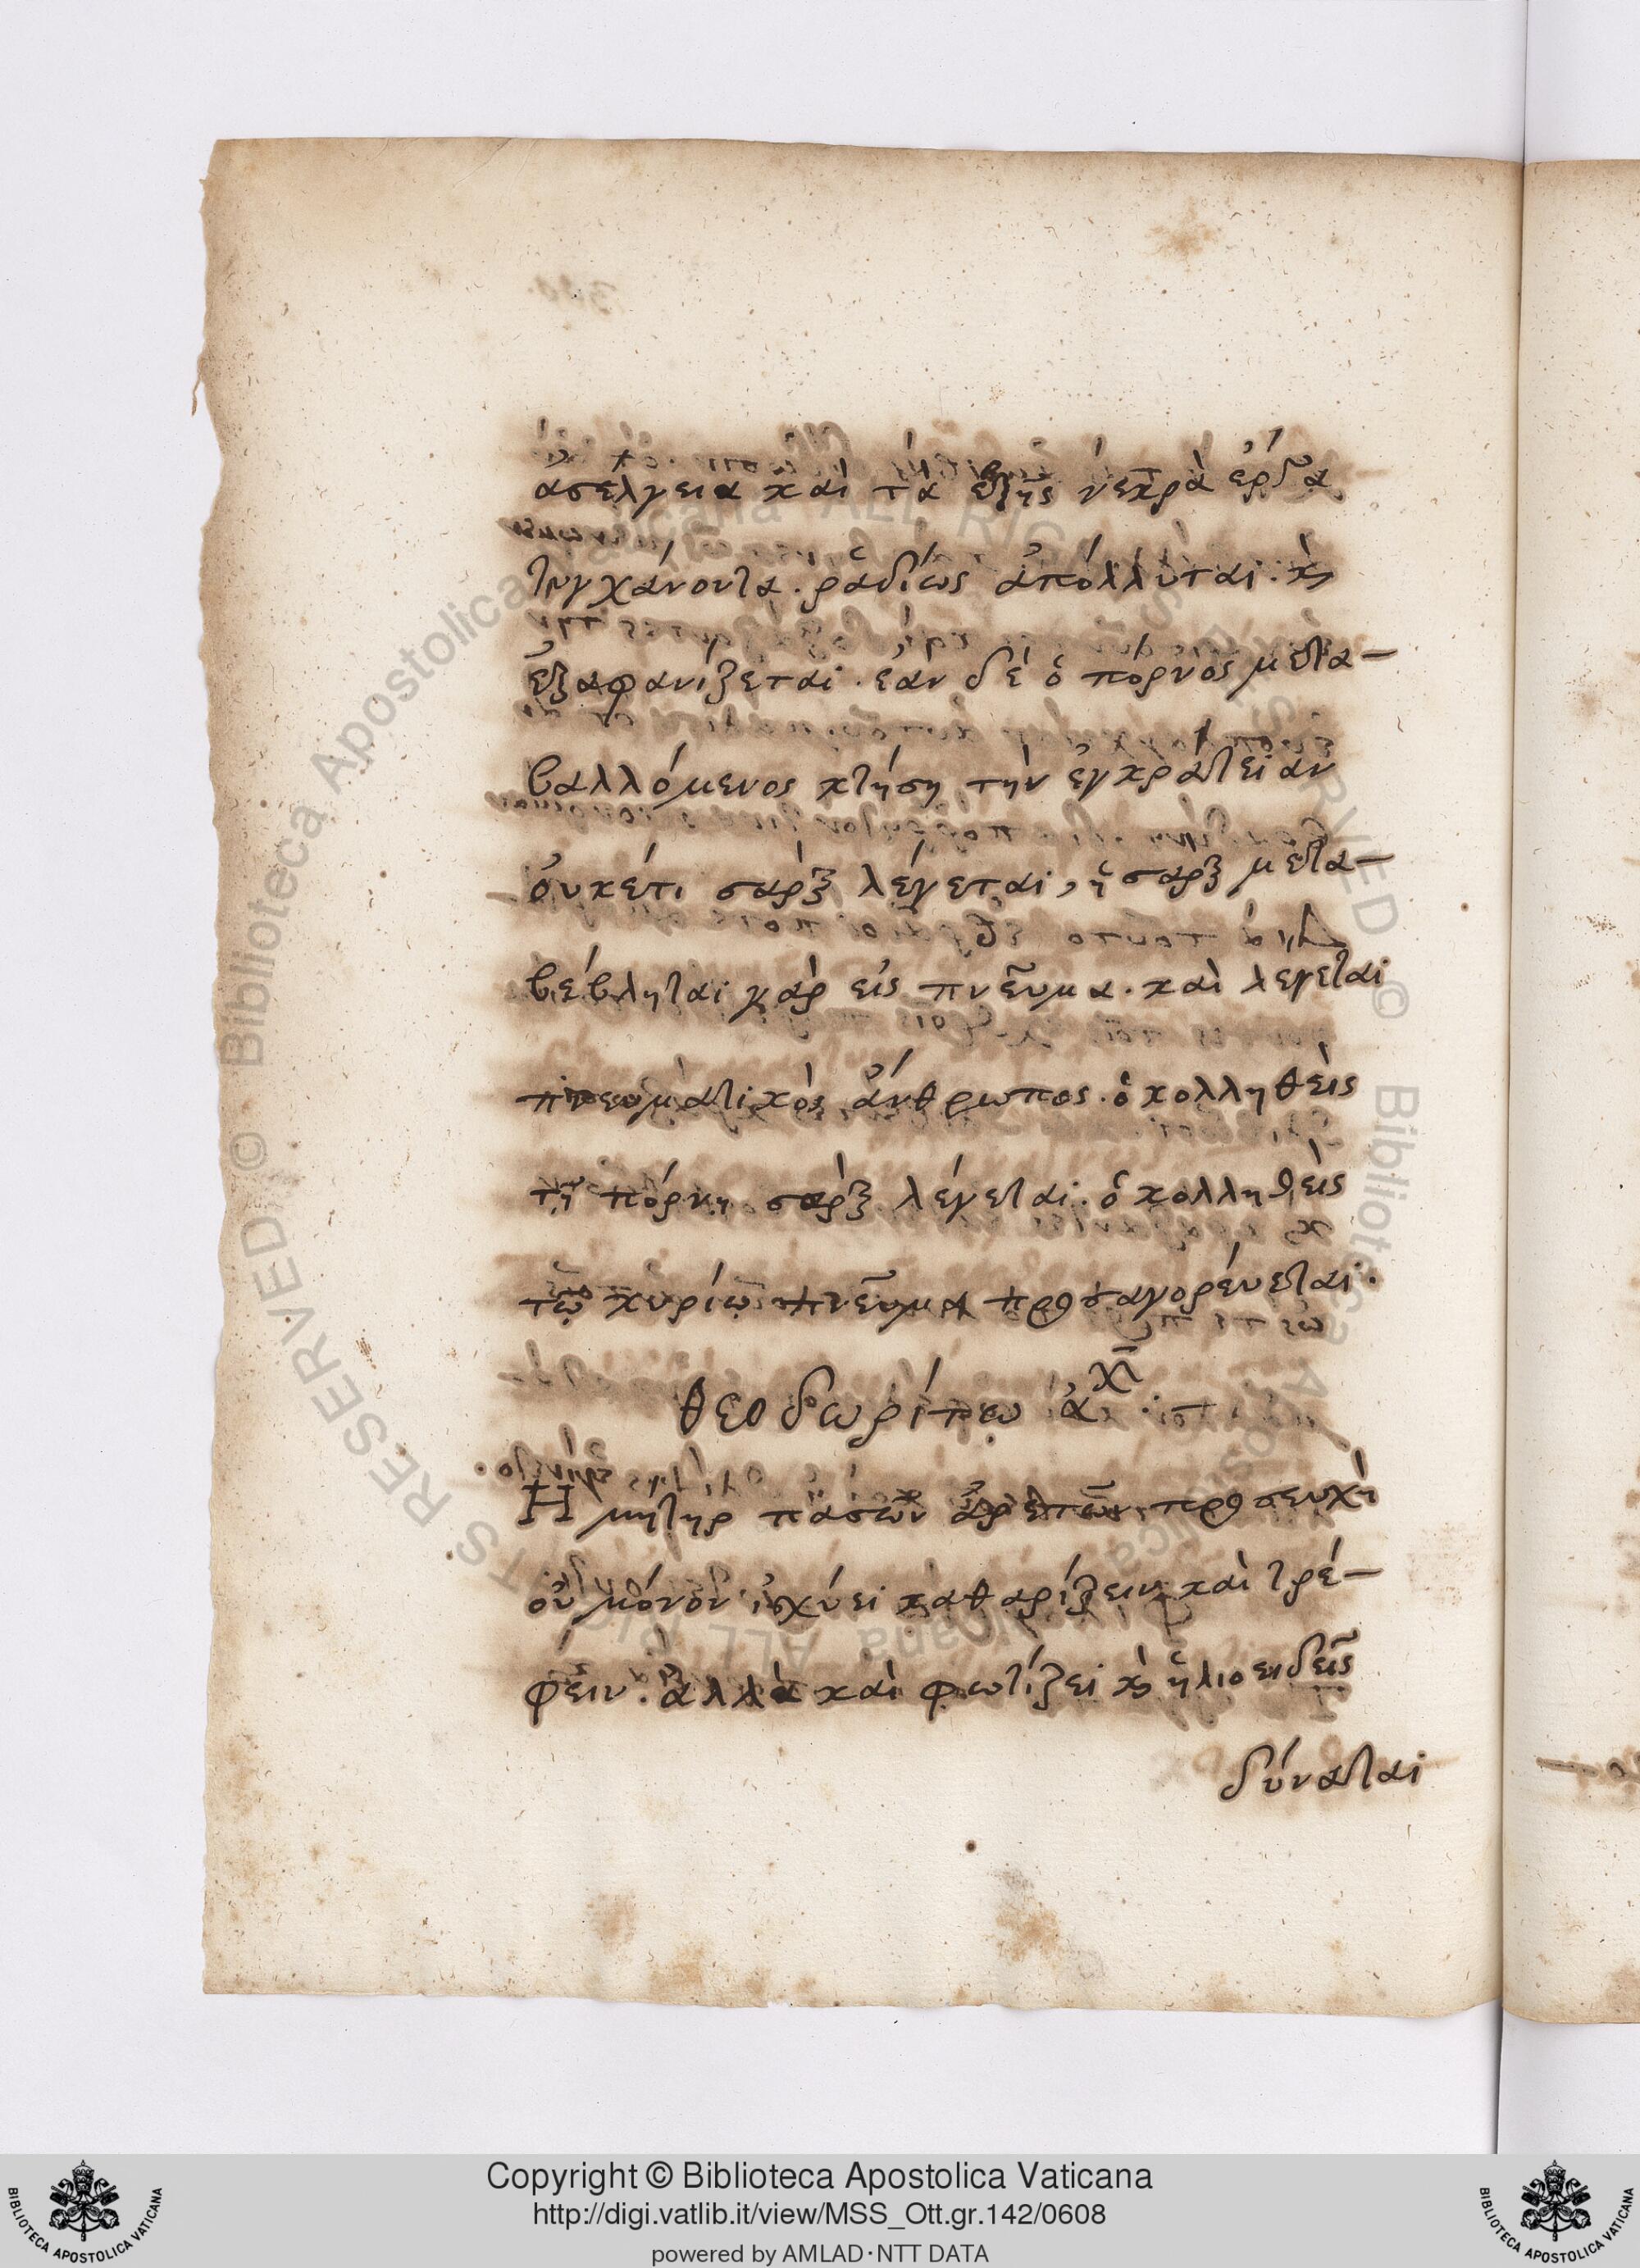 ἀσέλγεια καὶ τὰ ἑξῆς νεκρὰ ἔργα
τυγχάνοντα. ῥαδίως ἀπόλλυται. κ
ἐξαφανίζεται. ἐὰν δὲ ὁ πόρνος μετα-
βαλλόμενος κτήση τὴν ἐγκράτειαν
οὐκέτι σὰρξ λέγεται, ἡ σαρξ μετα-
βέβληται γὰρ εἰς πνεῦμα. καὶ λέγεται
πνευματικὸς ἄνθρωπος. ὁ κολληθεὶς
τῇ πόρνῃ σὰρξ λέγεται. ὁ κολληθεὶς
τῷ κυρίῳ πνεῦμα προσαγορέυεται.
θεοδωρίτου
Η μήτηρ πασῶν ἀρετῶν προσευχὴ
οὐ μόνον ἰσχύει καθαρίζειν καὶ τρέ-
φειν. ἀλλὰ καὶ φωτίζει κ ἡλιοειδεῖς
δύναται
Copyright © Biblioteca Apostolica Vaticana
http://digi.vatlib.it/view/MSS_Ott.gr.142/0608
powered by AMLAD·NTT DATA
BIBLIOTECA APOSTOLICA VATICANA
BIBLIOTECA APOSTOLICA VATICANA